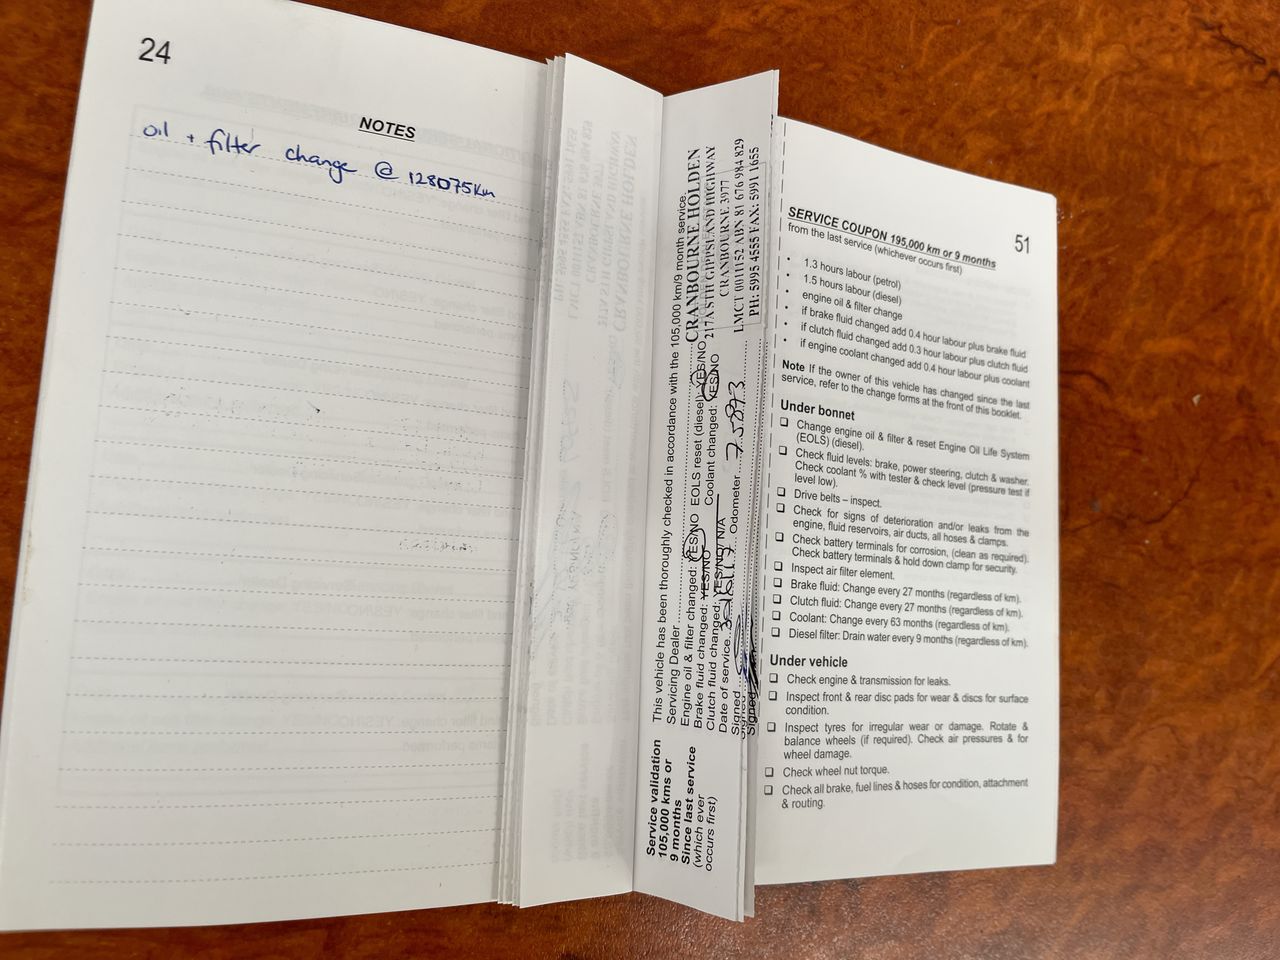 24
NOTES
oil + filter change @ 128075km
Service validation
105,000 kms or
9 months
Since last service
(which ever
occurs first)
This vehicle has been thoroughly checked in accordance with the 105,000 km/9 month service.
Servicing Dealer
Engine oil & filter changed: YES/NO EOLS reset (diesel) YES/NO
Brake fluid changed: YES/NO Coolant changed: YES/NO
Clutch fluid changed: YES/NO/ N/A
Date of service Odometer 75893
Signed
Signed
CRANBOURNE HOLDEN
217A STH GIPPSLAND HIGHWAY
CRANBOURNE 3977
LMCT 0011152 ABN 81 676 984 829
PH: 5995 4555 FAX: 5991 1655
51
SERVICE COUPON 195,000 km or 9 months
from the last service (whichever occurs first)
• 1.3 hours labour (petrol)
• 1.5 hours labour (diesel)
• engine oil & filter change
• if brake fluid changed add 0.4 hour labour plus brake fluid
• if clutch fluid changed add 0.3 hour labour plus clutch fluid
• if engine coolant changed add 0.4 hour labour plus coolant
Note If the owner of this vehicle has changed since the last
service, refer to the change forms at the front of this booklet.
Under bonnet
❑ Change engine oil & filter & reset Engine Oil Life System
(EOLS) (diesel).
❑ Check fluid levels: brake, power steering, clutch & washer.
Check coolant % with tester & check level (pressure test if
level low).
❑ Drive belts – inspect.
❑ Check for signs of deterioration and/or leaks from the
engine, fluid reservoirs, air ducts, all hoses & clamps.
❑ Check battery terminals for corrosion, (clean as required).
Check battery terminals & hold down clamp for security.
❑ Inspect air filter element.
❑ Brake fluid: Change every 27 months (regardless of km).
❑ Clutch fluid: Change every 27 months (regardless of km).
❑ Coolant: Change every 63 months (regardless of km).
❑ Diesel filter: Drain water every 9 months (regardless of km).
Under vehicle
❑ Check engine & transmission for leaks.
❑ Inspect front & rear disc pads for wear & discs for surface
condition.
❑ Inspect tyres for irregular wear or damage. Rotate &
balance wheels (if required). Check air pressures & for
wheel damage.
❑ Check wheel nut torque.
❑ Check all brake, fuel lines & hoses for condition, attachment
& routing.